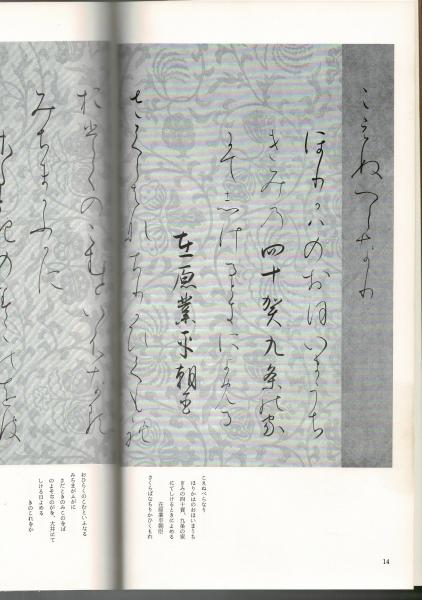 こえぬへらなり
ほりかハのおほいまうち
きみの四十賀九条の家
にてしけるときによめる
在原業平朝臣
さくらはなちりかひくもれ
おいらくのこむといふなる
みちまかふかに
こえぬべらなり
ほりかはのおほいまうち
ぎみの四十賀、九条の家
にてしけるときによめる
在原業平朝臣
さくらばなちりかひくもれ
おひらくのこむといふなる
みちまがふがに
さだときのみこのをば
のよそぢのがを、大井にて
しける日よめる
きのこれをか
14